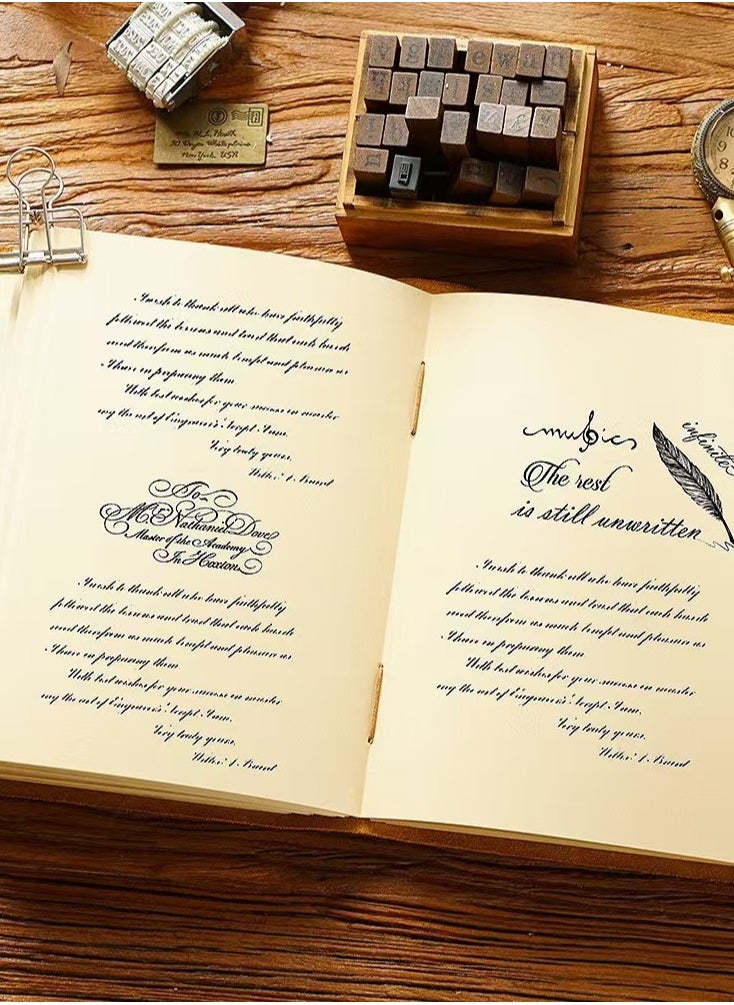 I wish to thank all who have faithfully
followed the lessons and trust that each has de
and therefrom as much benefit and pleasure as
I have in preparing them
With best wishes for your success in master
ing the art of Engraver's Script. I am,
Very truly yours,
To
Mr. Nathaniel Dove
Master of the Academy
In Hoxton
I wish to thank all who have faithfully
followed the lessons and trust that each has de
and therefrom as much benefit and pleasure as
I have in preparing them
With best wishes for your success in master
ing the art of Engraver's Script. I am,
Very truly yours,
music
infinite
The rest
is still unwritten
I wish to thank all who have faithfully
followed the lessons and trust that each has de
and therefrom as much benefit and pleasure as
I have in preparing them
With best wishes for your success in master
ing the art of Engraver's Script. I am,
Very truly yours,
New York, USA